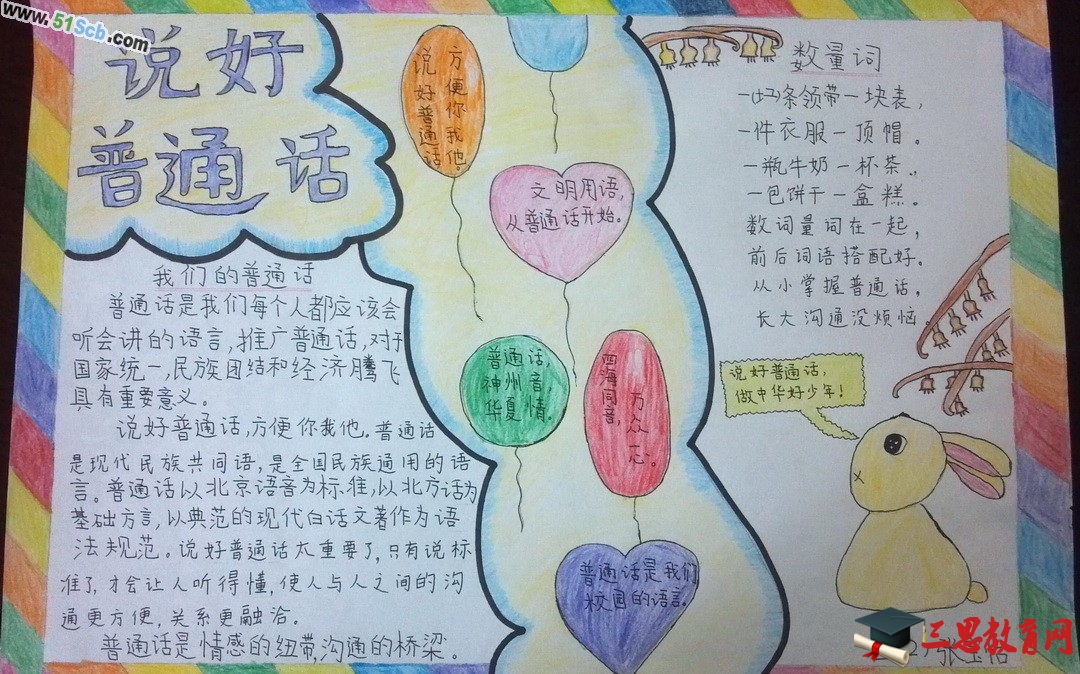 www.51Scb.com
说好
普通话
我们的普通话
普通话是我们每个人都应该会
听会讲的语言,推广普通话,对于
国家统一,民族团结和经济腾飞
具有重要意义。
说好普通话,方便你我他。普通话
是现代民族共同语,是全国民族通用的语
言。普通话以北京语音为标准,以北方话为
基础方言,以典范的现代白话文著作为语
法规范。说好普通话太重要了,只有说标
准了,才会让人听得懂,使人与人之间的沟
通更方便,关系更融洽。
普通话是情感的纽带,沟通的桥梁。
说好普通话
方便你我他。
文明用语,
从普通话开始。
普通话,
神州音,
华夏情。
四海同音,
万众一心。
普通话是我们
校园的语言。
数量词
条领带一块表,
一件衣服一顶帽。
一瓶牛奶一杯茶.,
一包饼干一盒糕.
数词量词在一起,
前后词语搭配好.
从小掌握普通话,
长大沟通没烦恼
说好普通话,
做中华好少年!
三思教育网
张